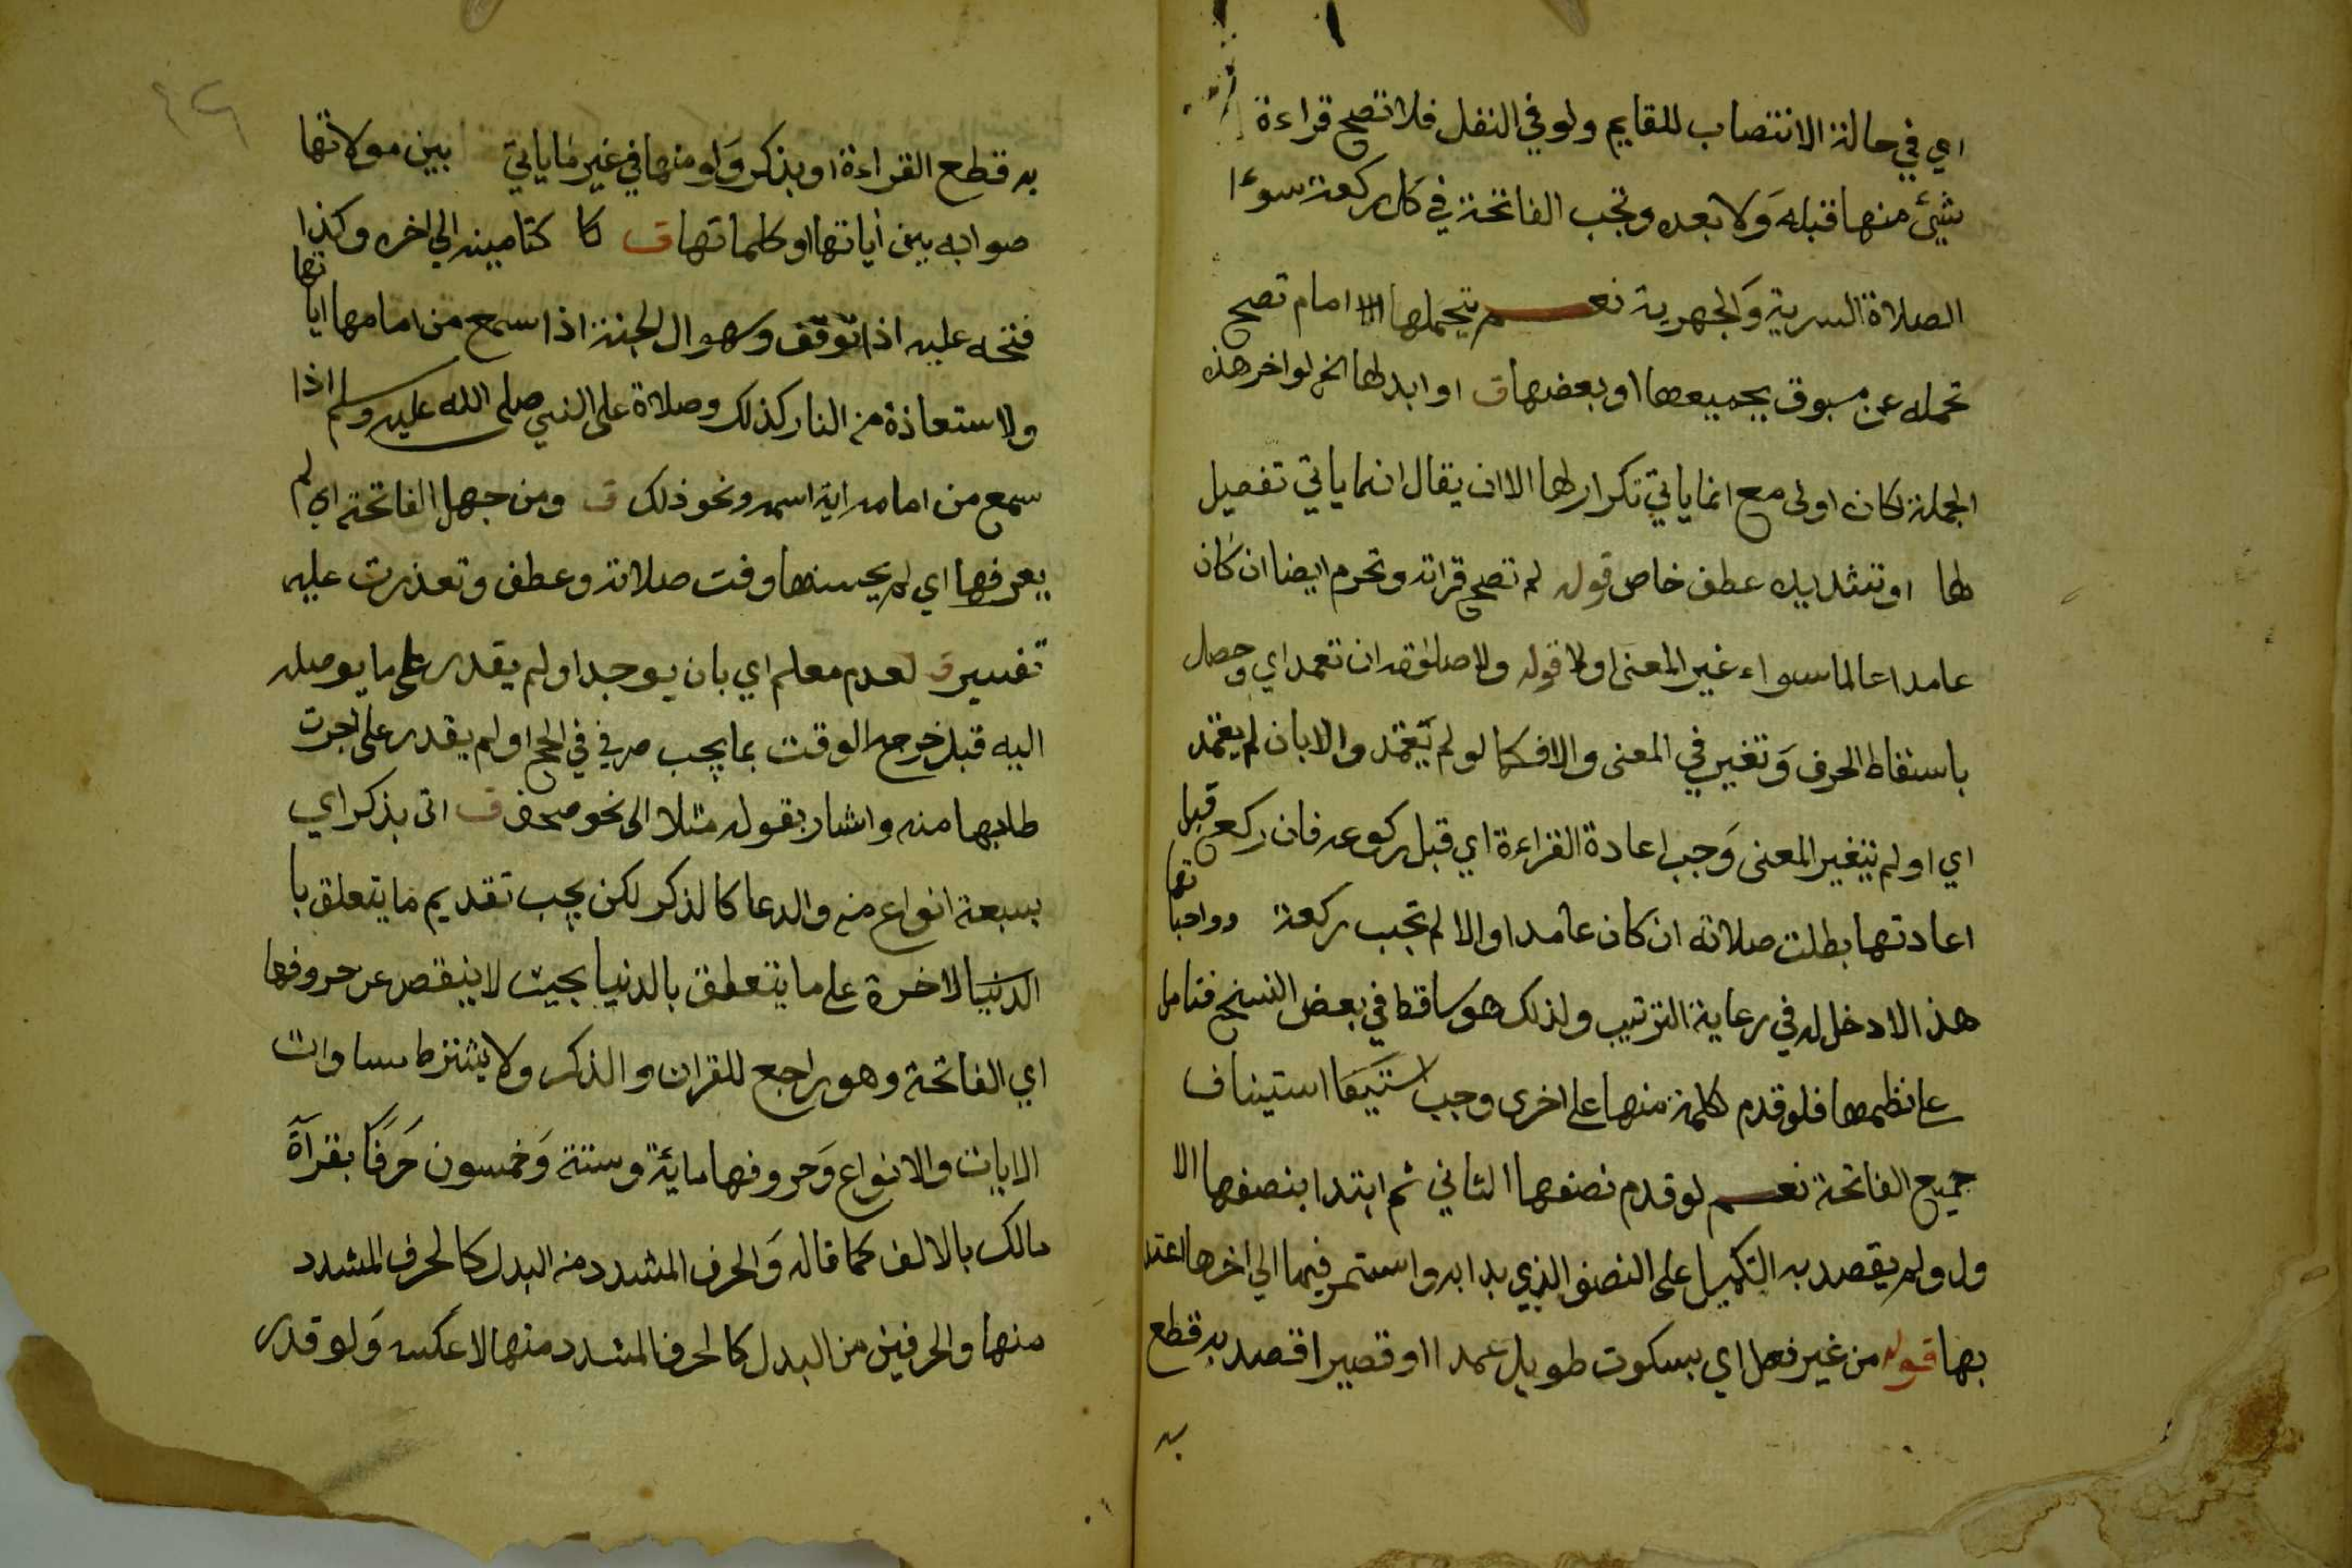 اي في حالة الانتصاب للقايم ولو في النفل فلا تصح قراءة
شيئ منها قبله وَلا بعده وتجب الفاتحة في كل ركعة سوءا
الصلاة السرية وَالجهرية نعم يتحملها الامام تصح
تحمله عن مسبوق بجميعها او بعضها ق او ابدلها الخ لواخر هذه
الجملة لكان اولى مع انما ياتي تكرار لها الا ان يقال انما ياتي تفصيل
لها او تشديده عطف خاص قوله لم تصح قراته وتحرم ايضا ان كان
عامدا عالما سواء غير المعنى اولا قوله ولا صلوته ان تعمد اي وحصل
باسقاط الحرف وَتغير في المعنى والا فكما لو لم يتعمد والا بان لم يتعمد
اي او لم يتغير المعنى وَجب اعادة القراءة اي قبل ركوعه فان ركع قبل
اعادتها بطلت صلاته ان كان عامدا والا لم تجب ركعة وواجباتها
هذا لا دخل له في رعاية الترتيب ولذلك هو ساقط في بعض النسخ فتامل
على نظمها فلو قدم كلمة منها على اخرى وجب استيناف
جميع الفاتحة نعم لو قدم نصفها الثاني ثم ابتدا بنصفها الا
ول ولم يقصد به التكميل على النصف الذي بدا به واستمر فيها الى اخرها اعتد
بها قوله من غير فصل اي بسكوت طويل عمدا او قصيرا قصد به قطع
به
به قطع القراءة او بذكر وَلو منها في غير ما ياتي بين مولاتها
صوابه بين اياتها او كلماتها ق لا كتامينه الى اخره وكذا
فتحه عليه اذا توقف وسوال الجنة اذا سمع من امامها اياتها
ولا ستعاذة من النار كذلك وصلاة على النبي صلى الله عليه وسلم اذا
سمع من امامه اية اسمه ونحو ذلك ق ومن جهل الفاتحة اي لم
يعرفها اي لم يحسنها وقت صلاته وعطف وتعذرت عليه
تفسير ق لعدم معلم اي بان يوجد او لم يقدر على ما يوصله
اليه قبل خرجه الوقت بما يجب صرفي في الحج او لم يقدر على اجرت
طلبها منه واشار بقوله مثلا الى نحو مصحف ق اتى بذكر اي
بسبعة انواع منه والدعا كالذكر لكن يجب تقديم ما يتعلق با
الدنيا لاخرة على ما يتعلق بالدنيا بحيث لا ينقص عن حروفها
اي الفاتحة وهو راجع للقران والذكر ولا يشترط مساوات
الايات والانواع وَحروفها ماية وستة وَخمسون حَرفَا بقرآة
مالك بالالف كما قاله وَالحرف المشدد من البدل كالحرف المشدد
منها والحرفين من البدل كالحرف المشدد منها لا عكسه وَلو قدر